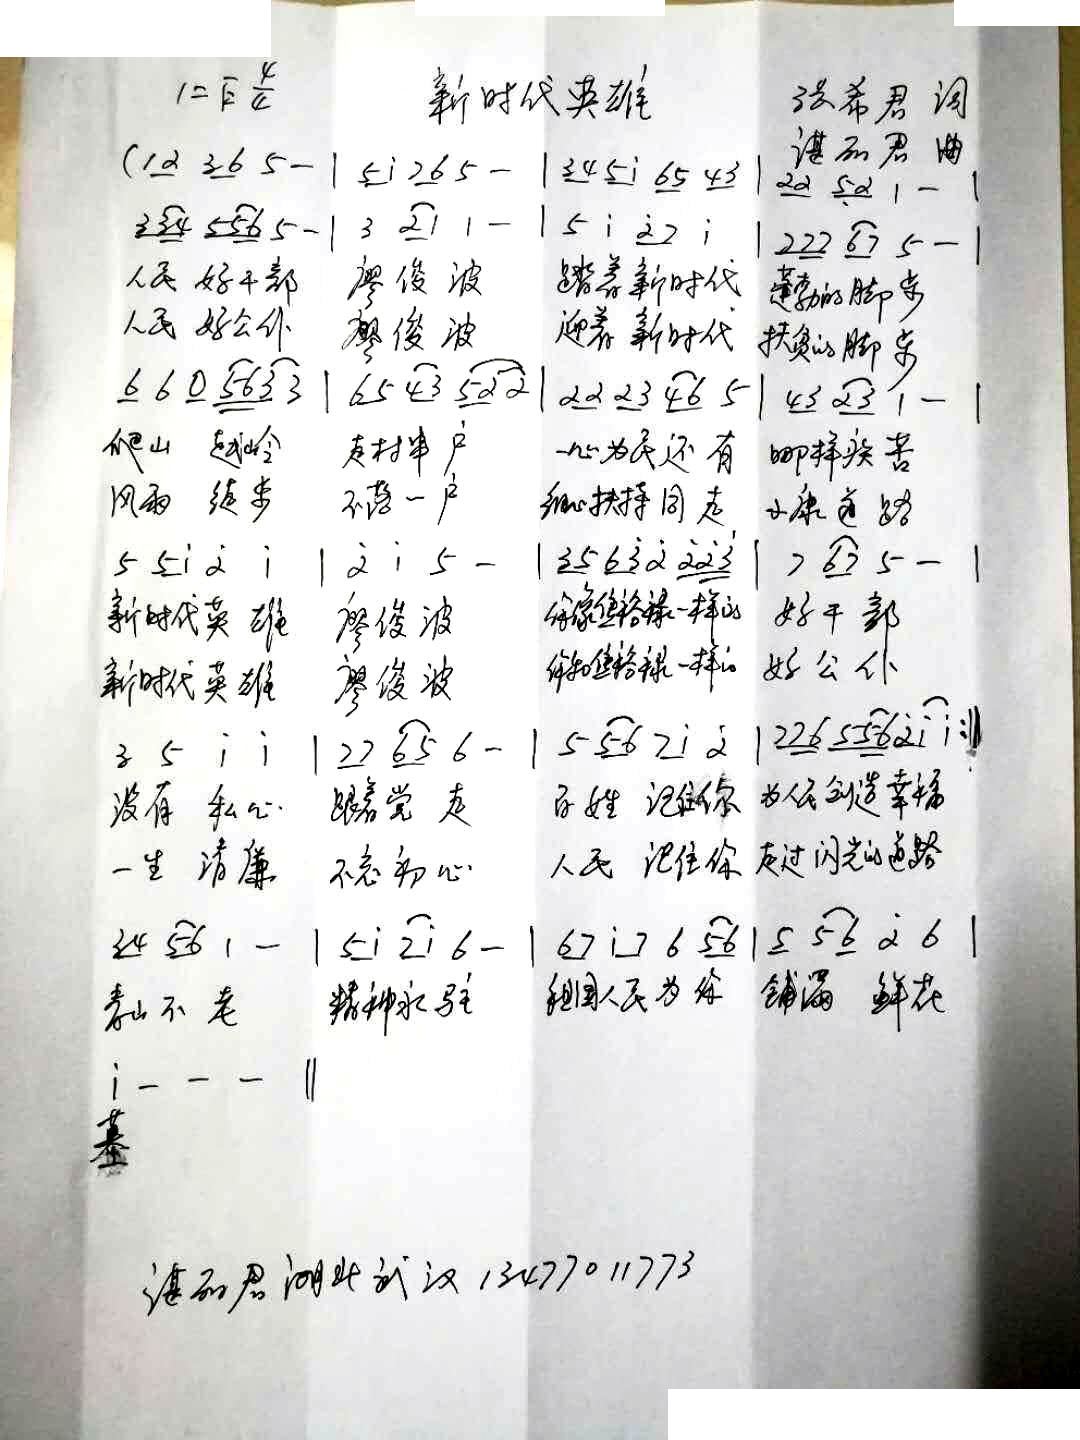 1=F 4/4 新时代英雄 张希君 词
谌丽君 曲
(12 36 5 - | 5i 76 5 - | 345i 65 43 | 22 52 1 - |
334 556 5 - | 3 21 1 - | 5 i 27 i | 222 67 5 - |
人民 好干部 廖俊波 踏着新时代 蓬勃的脚步
人民 好公仆 廖俊波 迎着新时代 扶贫的脚步
6 6 0 5633 | 65 43 522 | 22 23 46 5 | 43 23 1 - |
爬山 越岭 走村串户 一心为民还有 哪样疾苦
风雨 徒步 不落一户 细心扶持同走 小康道路
5 5i 2 i | 2 i 5 - | 35 632 223 | 7 67 5 - |
新时代英雄 廖俊波 你像焦裕禄一样的 好干部
新时代英雄 廖俊波 你和焦裕禄一样的 好公仆
3 5 i i | 77 65 6 - | 5 56 7i 2 | 776 5562i i :||
没有 私心 跟着党走 百姓 记住你 为人民创造幸福
一生 清廉 不忘初心 人民 记住你 走过闪光的道路
34 56 1 - | 5i 7i 6 - | 67 i7 6 56 | 5 56 2 6 |
青山不老 精神永驻 祖国人民为你 铺满 鲜花
i - - - ||
谌丽君湖北武汉13477011773